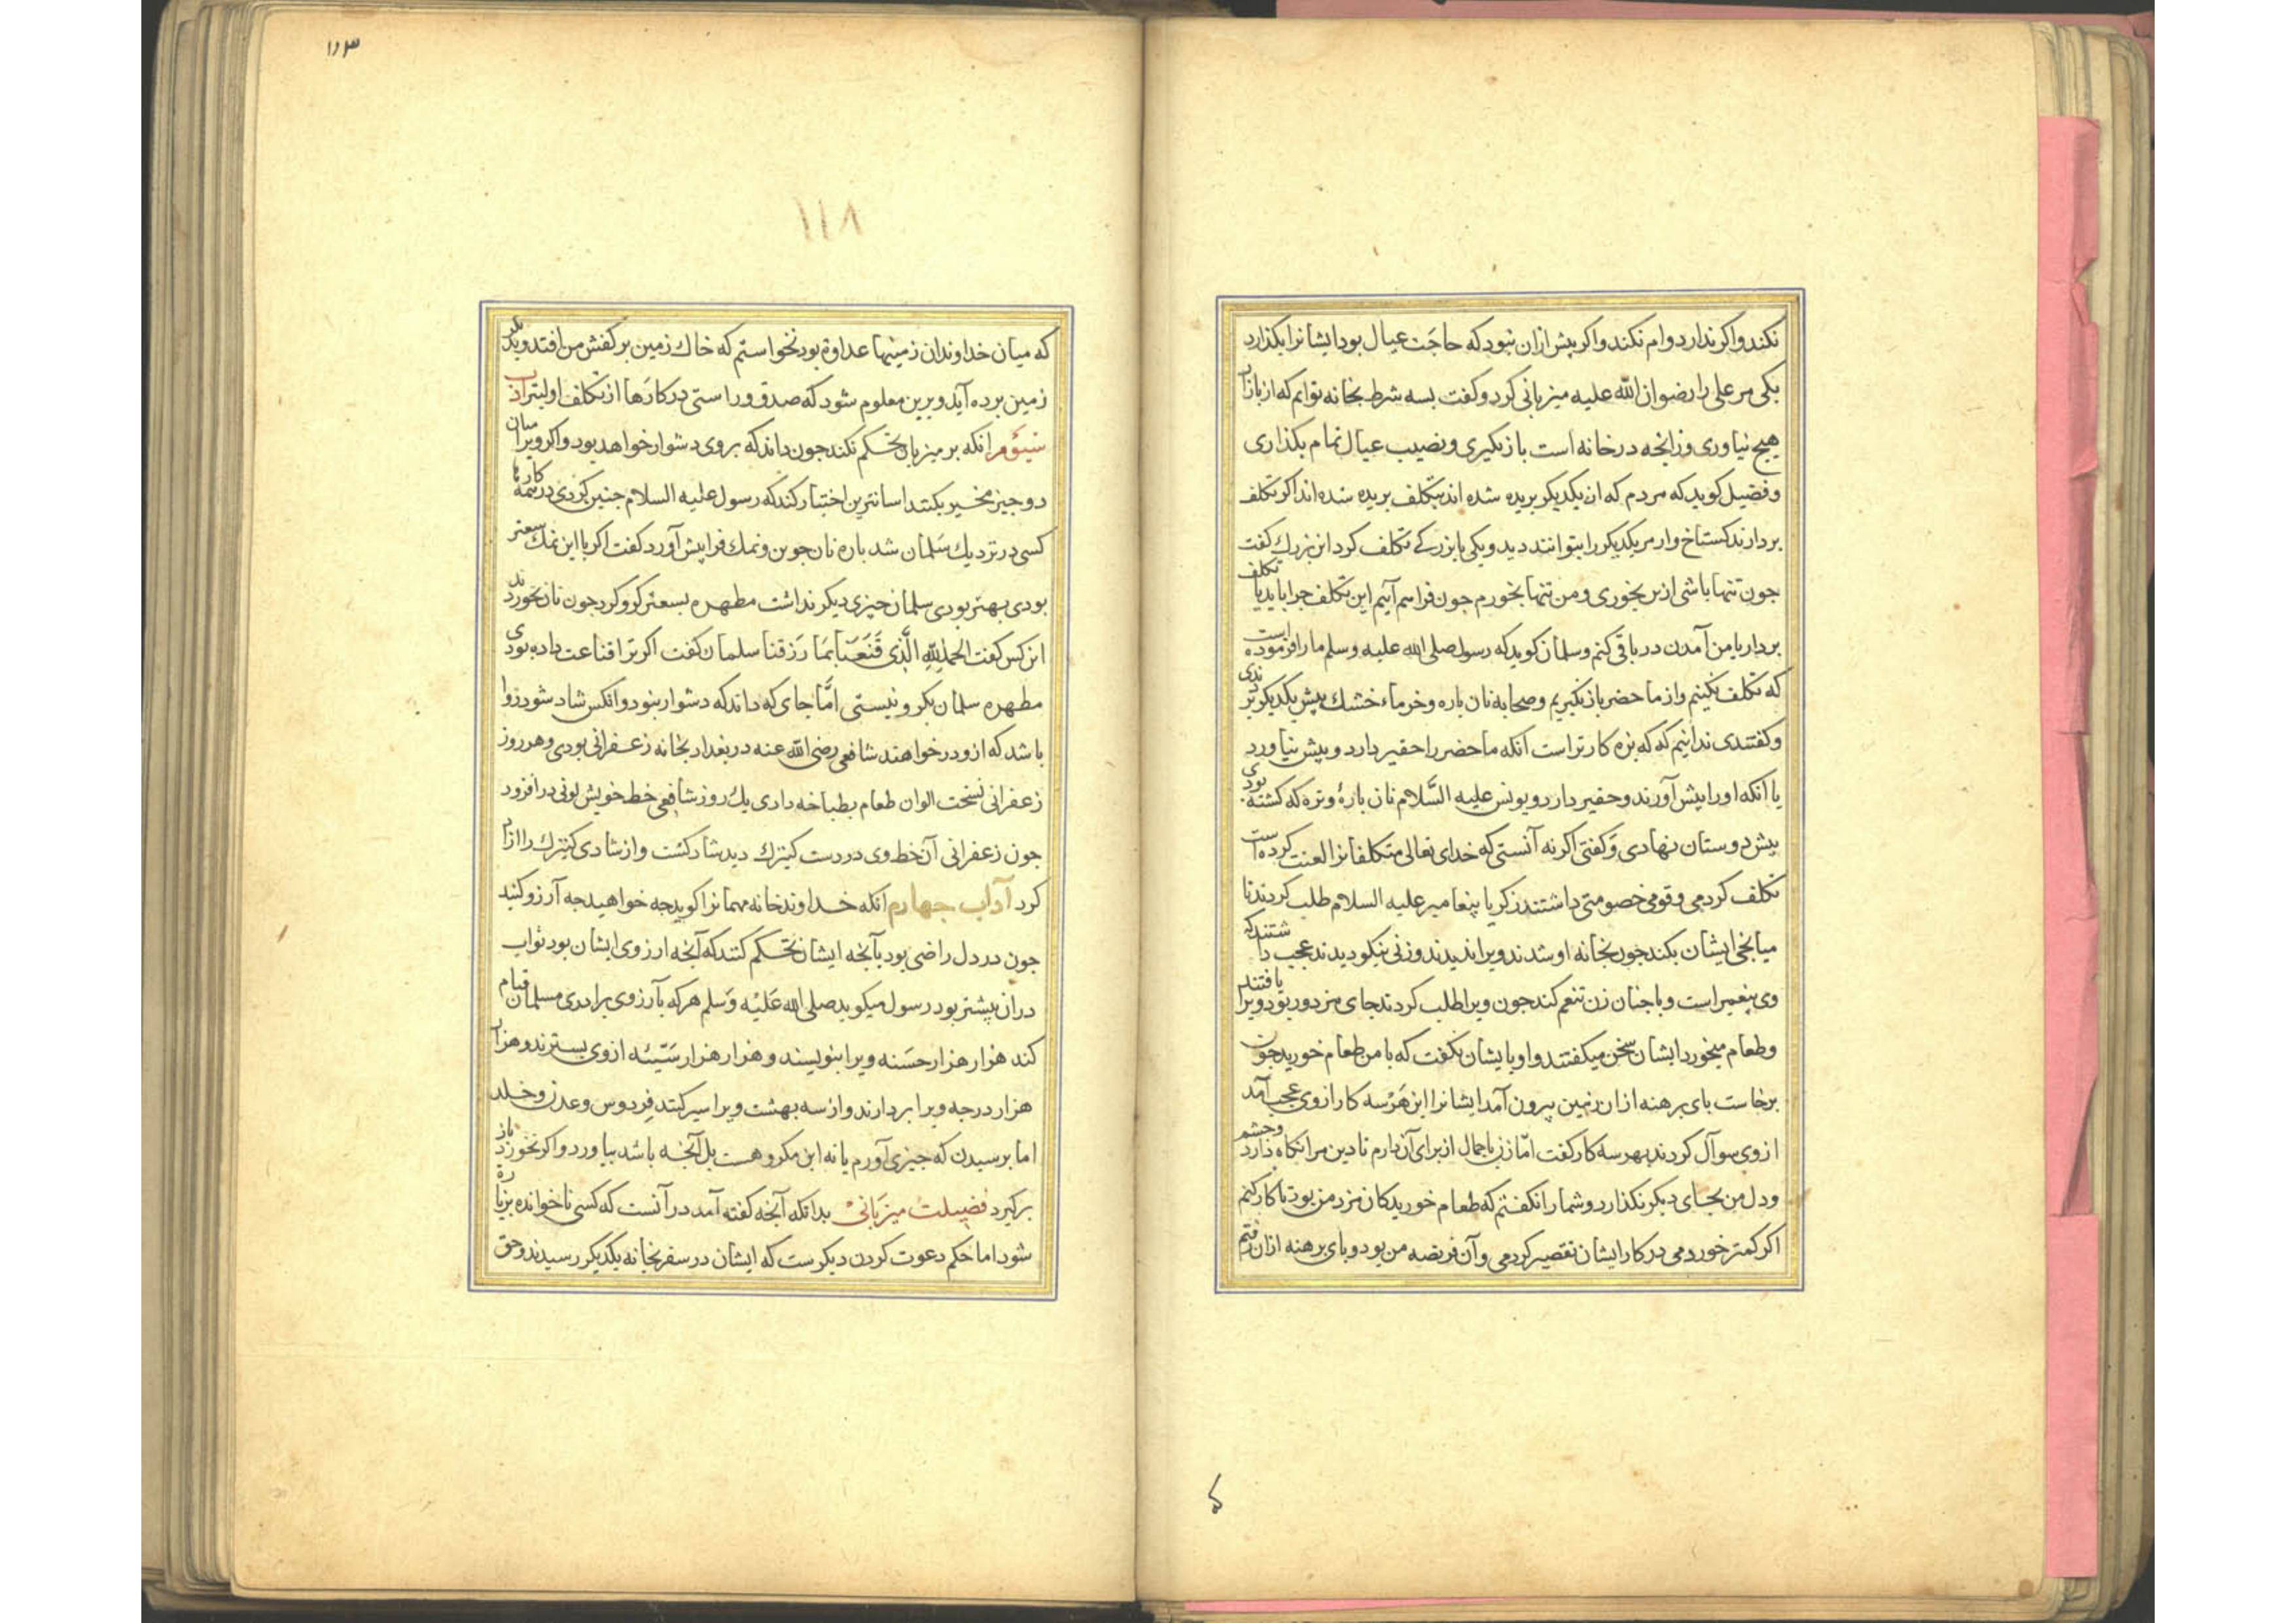 نکند واکر ندارد وام نکند واکر بیش ازان نبود که حاجت عیال بود ایشانرا بکذارد
یکی مر علی را رضوان الله علیه میزبانی کرد و کفت بسه شرط بخانه توایم که از بازار
هیچ نیاوری وز انجه در خانه است باز نکیری و نصیب عیال تمام بکذاری
و فضیل کوید که مردم که ان یکدیکر بریده شده اند بتکلف بریده شده اند اکر تکلف
بردارند کستاخ وار مر یکدیکر را بتوانند دید و یکی با بزرکے تکلف کرد ان بزرك کفت
جون تنها باشی ازین نخوری و من تنها نخورم جون فراهم آییم این تکلف جرا باید یا تکلف
بردار یا من آمدن در باقی کنم و سلمان کوید که رسول صلی الله علیه وسلم ما را فرموده است
که تکلف نکنیم و از ما حضر باز نکیریم و صحابه نان پاره و خرماء خشك پیش یکدیکر برندی
و کفتندی ندانیم که که بزه کارتر است آنکه ما حضر را حقیر دارد و پیش نیاورد
یا آنکه او را پیش آورند و حقیر دارد و یونس علیه السَّلام نان پارۀ و تره که کشته بودی
پیش دوستان نهادی و کفتی اکر نه آنستی که خدای تعالی متکلفانرا لعنت کرده است
تکلف کردمی و قومی خصومتی داشتند زکریا پیغامبر علیه السلام طلب کردند تا
میانجی ایشان بکند جون بخانه او شدند ویرا ندیدند و زنی نیکو دیدند عجب داشتند که
وی پیغمبر است و با جنان زن تنعم کند جون ویرا طلب کردند جای مزدور بود ویرا یافتند
و طعام میخورد ایشان سخن میکفتند و او با ایشان نکفت که با من طعام خورید جون
برخاست بای برهنه ازان زمین بیرون آمد ایشانرا این هَرسه کار از وی عجب آمد
از وی سوآل کردند بهر سه کار کفت امّا زن با جمال از برای آن دارم تا دین مرا نکاه دارد و چشم
و دل من بجای دیکر نکذارد و شما را نکفتم که طعام خورید کان مزد من بود تا کار کنم
اکر کمتر خوردمی در کار ایشان تقصیر کردمی و آن فریضه من بود و بای برهنه ازان رفتم
۱۱۳
۱۱۸
که میان خداوندان زمینها عداوة بود نخواستم که خاك زمین بر کفش من افتد و بدیکر
زمین برده آید و برین معلوم شود که صدق و راستی در کارها از تکلف اولیتر آداب
سِیُوُم انکه بر میزبان تحکم نکند جون داند که بر وی دشوار خواهد بود واکر ویرا میان
دو جیز مخیر بکنند اسانترین اختیار کند که رسول علیه السلام جنین کردی در همه کارها
کسی در نزدیك سَلمان شد باره نان جوین و نمك فراپیش آورد کفت اکر با این نمك سعتر
بودی بهتر بودی سلمان جیزی دیکر نداشت مطهره بسعتر کرو کرد جون نان بخوردند
این کس کفت الحمد للهِ الَّذی قَنَعَنَا بِمَا رَزقنا سلمان کفت اکر ترا قناعت داده بودی
مطهره سلمان بکرو نیستی امَّا جای که داند که دشوار نبود و انکس شاد شود روا
باشد که ازو درخواهند شافعی رضی الله عنه در بغداد بخانه زعفرانی بودی و هر روز
زعفرانی نسخت الوان طعام بطباخه دادی یك روز شافعی خط خویش لونی در افزود
جون زعفرانی آن خط وی در دست کنیزك دید شاد کشت و از شادی کنیزك را ازاد
کرد آداب جهارم انکه خداوند خانه مهمانرا کوید جه خواهید جه آرزو کنید
جون در دل راضی بود بآنجه ایشان تحکم کنند که آنجه ارزوی ایشان بود ثواب
دران بیشتر بود رسول میکوید صلی الله عَلیْه وَسلم هر که بآرزوی برادری مسلمان قیام
کند هزار هزار حسَنه ویرا بنویسند و هزار هزار سَیّئه از وی بسترند و هزار
هزار درجه ویرا بردارند و از سه بهشت ویرا سیر کنند فردوس و عدن و خلد
اما برسیدن که جیزی آورم یا نه این مکروهست بل آنجه باشد بیاورد و اکر نخورند باز
برکیرد فضیلت میزبانی بدانکه آنجه کفته آمد در آنست که کسی ناخوانده بزیارة
شود اما حکم دعوت کردن دیکرست که ایشان در سفر بخانه یکدیکر رسیدند و حق